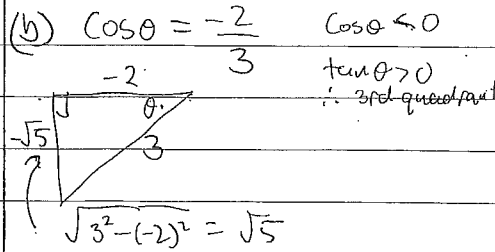 (b) Cosθ = -2/3 Cosθ < 0
tanθ > 0
-2 ∴ 3rd quadrant
θ.
-√5
3
√(3² - (-2)²) = √5